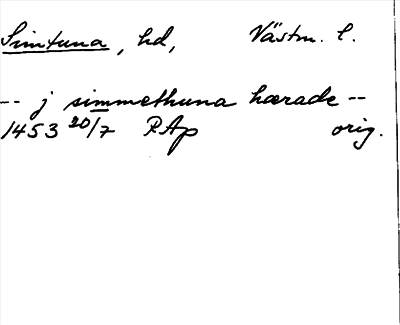 Simtuna, hd, Västm. l.
-- j simmethuna hærade --
1453 20/7 RAp orig.